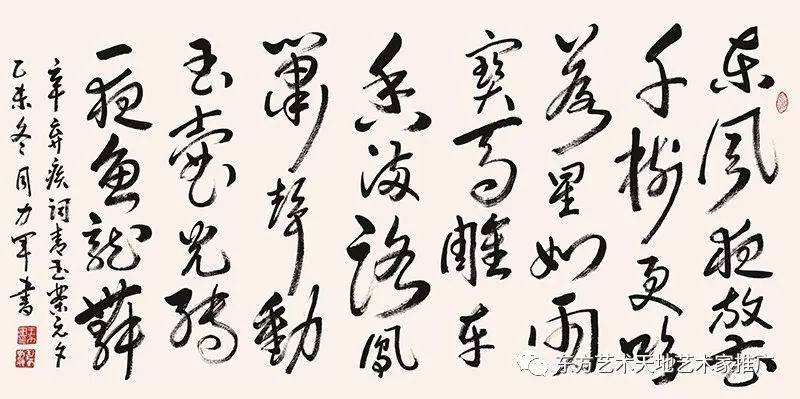 東風夜放花
千樹更吹
落星如雨
寶馬雕車
香滿路鳳
簫聲動
玉壺光轉
一夜魚龍舞
辛棄疾詞青玉案元夕
乙未冬周力軍書
东方艺术天地艺术家推广